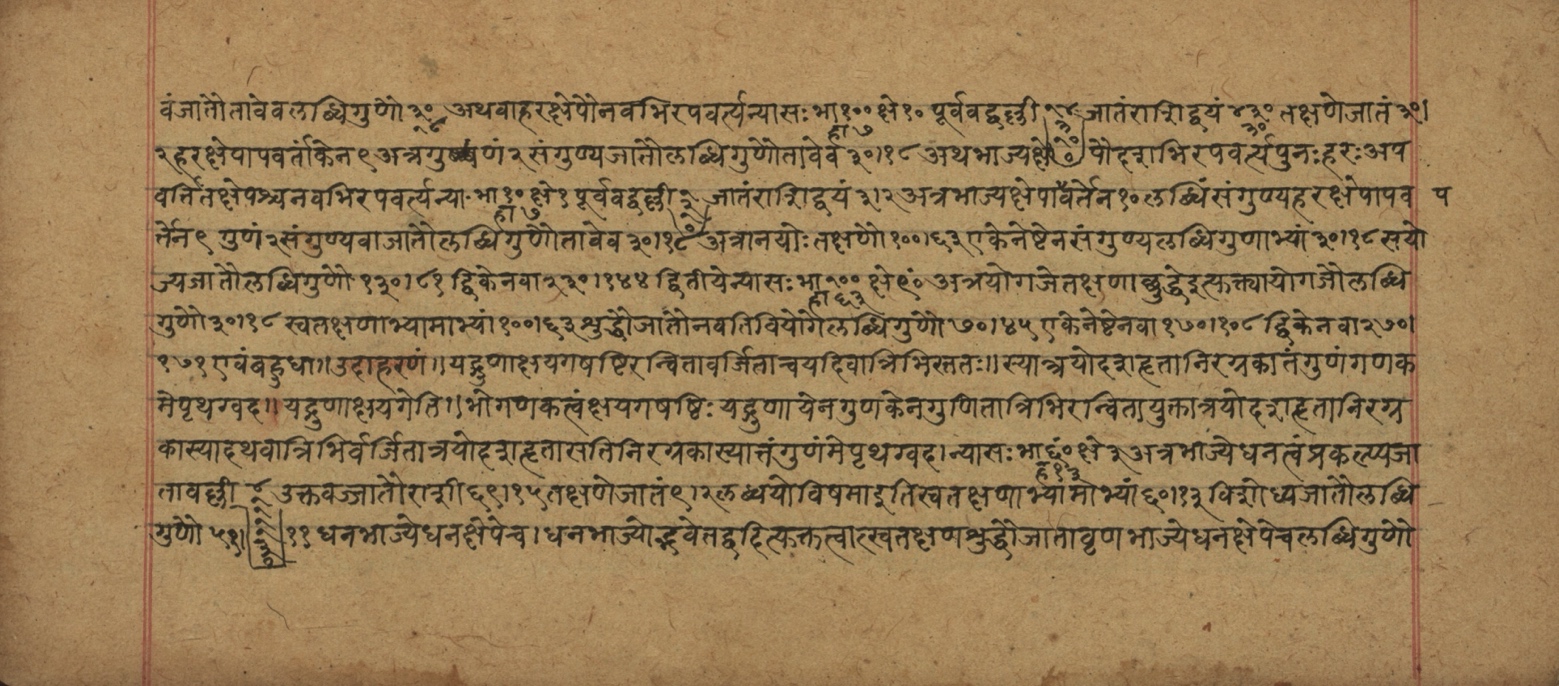 वंजातौतावेवलब्धिगुणौ ३० अथवाहरक्षेपौनवभिरपवर्त्यन्यासः भा १०० क्षे १० पूर्ववद्वल्ली जातंराशिद्वयं ४३० तक्षणेजातं ३०।
२ हरक्षेपापवर्तांकेन ९ अत्रगुणं २ संगुण्यजातौलब्धिगुणौतावेव ३०।१८ अथभाज्यक्षेपौदशभिरपवर्त्यपुनःहरःअप
वर्त्तितक्षेपश्चनवभिरपवर्त्यन्याः भा १० क्षे १ पूर्ववद्वल्ली जातंराशिद्वयं ३।२ अत्रभाज्यक्षेपापवर्तेन १० लब्धिंसंगुण्यहरक्षेपापव
र्त्तेन ९ गुणं २ संगुण्यवाजातौलब्धिगुणौतावेव ३०।१८ अत्रानयोः तक्षणौ १००।६३ एकेनेष्टेनसंगुण्यलब्धिगुणाभ्यां ३०।१८ सयो
ज्यजातौलब्धिगुणौ १३०।८१ द्विकेनवा २३०।१४४ द्वितीयेन्यासः भा १०० क्षे ९० अत्रयोगजेतक्षणाच्छुद्धेइत्फक्त्यायोगजौलब्धि
गुणौ ३०।१८ स्वतक्षणाभ्यामाभ्यां १००।६३ शुद्धौजातौनवतिवियोगेलब्धिगुणौ ७०।४५ एकेनेष्टेनवा १७०।१०८ द्विकेनवा २७०।
१७१ एवंबहुधा॥उदाहरणं॥यद्गुणाक्षयगषष्टिरन्वितावर्जिताचयदिवात्रिभिस्ततः॥स्यात्त्रयोदशहृतानिरग्रकातंगुणंगणक
मेपृथग्वद॥यद्गुणाक्षयगेति॥भोगणकत्वंक्षयगषष्टिः यद्गुणायेनगुणकेनगुणितात्रिभिरन्वितायुक्तात्रयोदशहृतानिरग्र
कास्यादथवात्रिभिर्वर्जितात्रयोदशहृतासतिनिरग्रकास्यात्तंगुणंमेपृथग्वद।न्यासः भा ६० क्षे ३ अत्रभाज्येधनत्वंप्रकल्प्यजा
तावल्ली उक्तवज्जातौराशी ६९।१५ तक्षणेजातं ९।२ लब्धयोविषमाइतिस्वतक्षणाभ्यामाभ्यां ६०।१३ विशोध्यजातौलब्धि
गुणौ ५१।११ धनभाज्येधनक्षेपेच।धनभाज्योद्भवेतद्वदित्फक्तत्वात्स्वतक्षणशुद्धौजातावृणभाज्येधनक्षेपेचलब्धिगुणौ